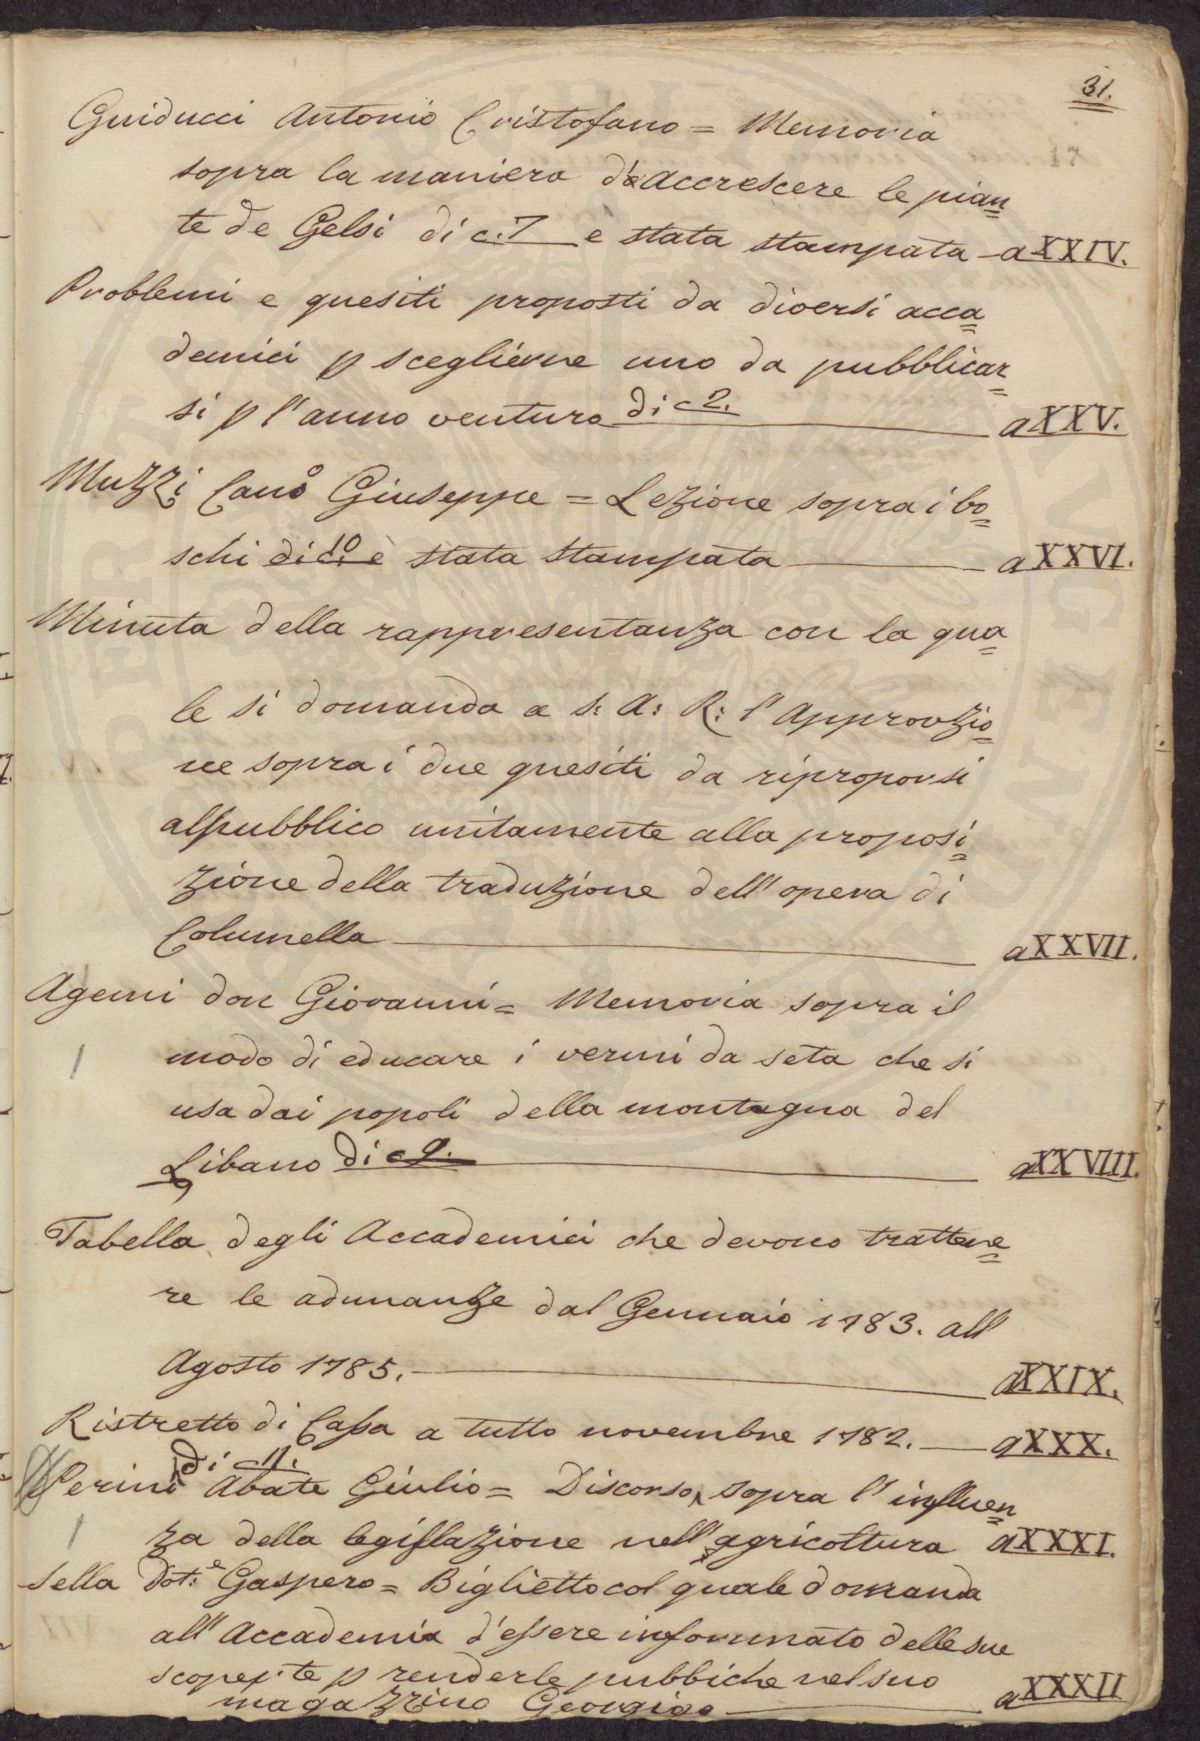 31.
Guiducci Antonio Cristofano = Memoria
sopra la maniera di accrescere le pian=
te de Gelsi di c. 7 è stata stampata - a XXIV.
Problemi e quesiti proposti da diversi acca=
demici p sceglierne uno da pubblicar=
si p l'anno venturo di c 2. a XXV.
Muzzi Cano Giuseppe = Lezione sopra i bo=
schi di c. 10 è stata stampata a XXVI.
Minuta della rappresentanza con la qua=
le si domanda a S: A: R: l'Approvzio=
ne sopra i due quesiti da riproporsi
al pubblico unitamente alla proposi=
zione della traduzione dell'opera di
Columella a XXVII.
Agemi don Giovanni = Memoria sopra il
modo di educare i vermi da seta che si
usa dai popoli della montagna del
Libano di c 9. a XXVIII.
Tabella degli Accademici che devono trattene=
re le adunanze dal Gennaio 1783. all'
Agosto 1785. a XXIX.
Ristretto di Cassa a tutto novembre 1782. a XXX.
di c 11.
Perini Abate Giulio = Discorso sopra l'influen=
za della legislazione nell'agricoltura a XXXI.
Sella Dot:e Gaspero = Biglietto col quale domanda
all'Accademia d'essere informato delle sue
scoperte p renderle pubbliche nel suo
magazzino Georgico a XXXII